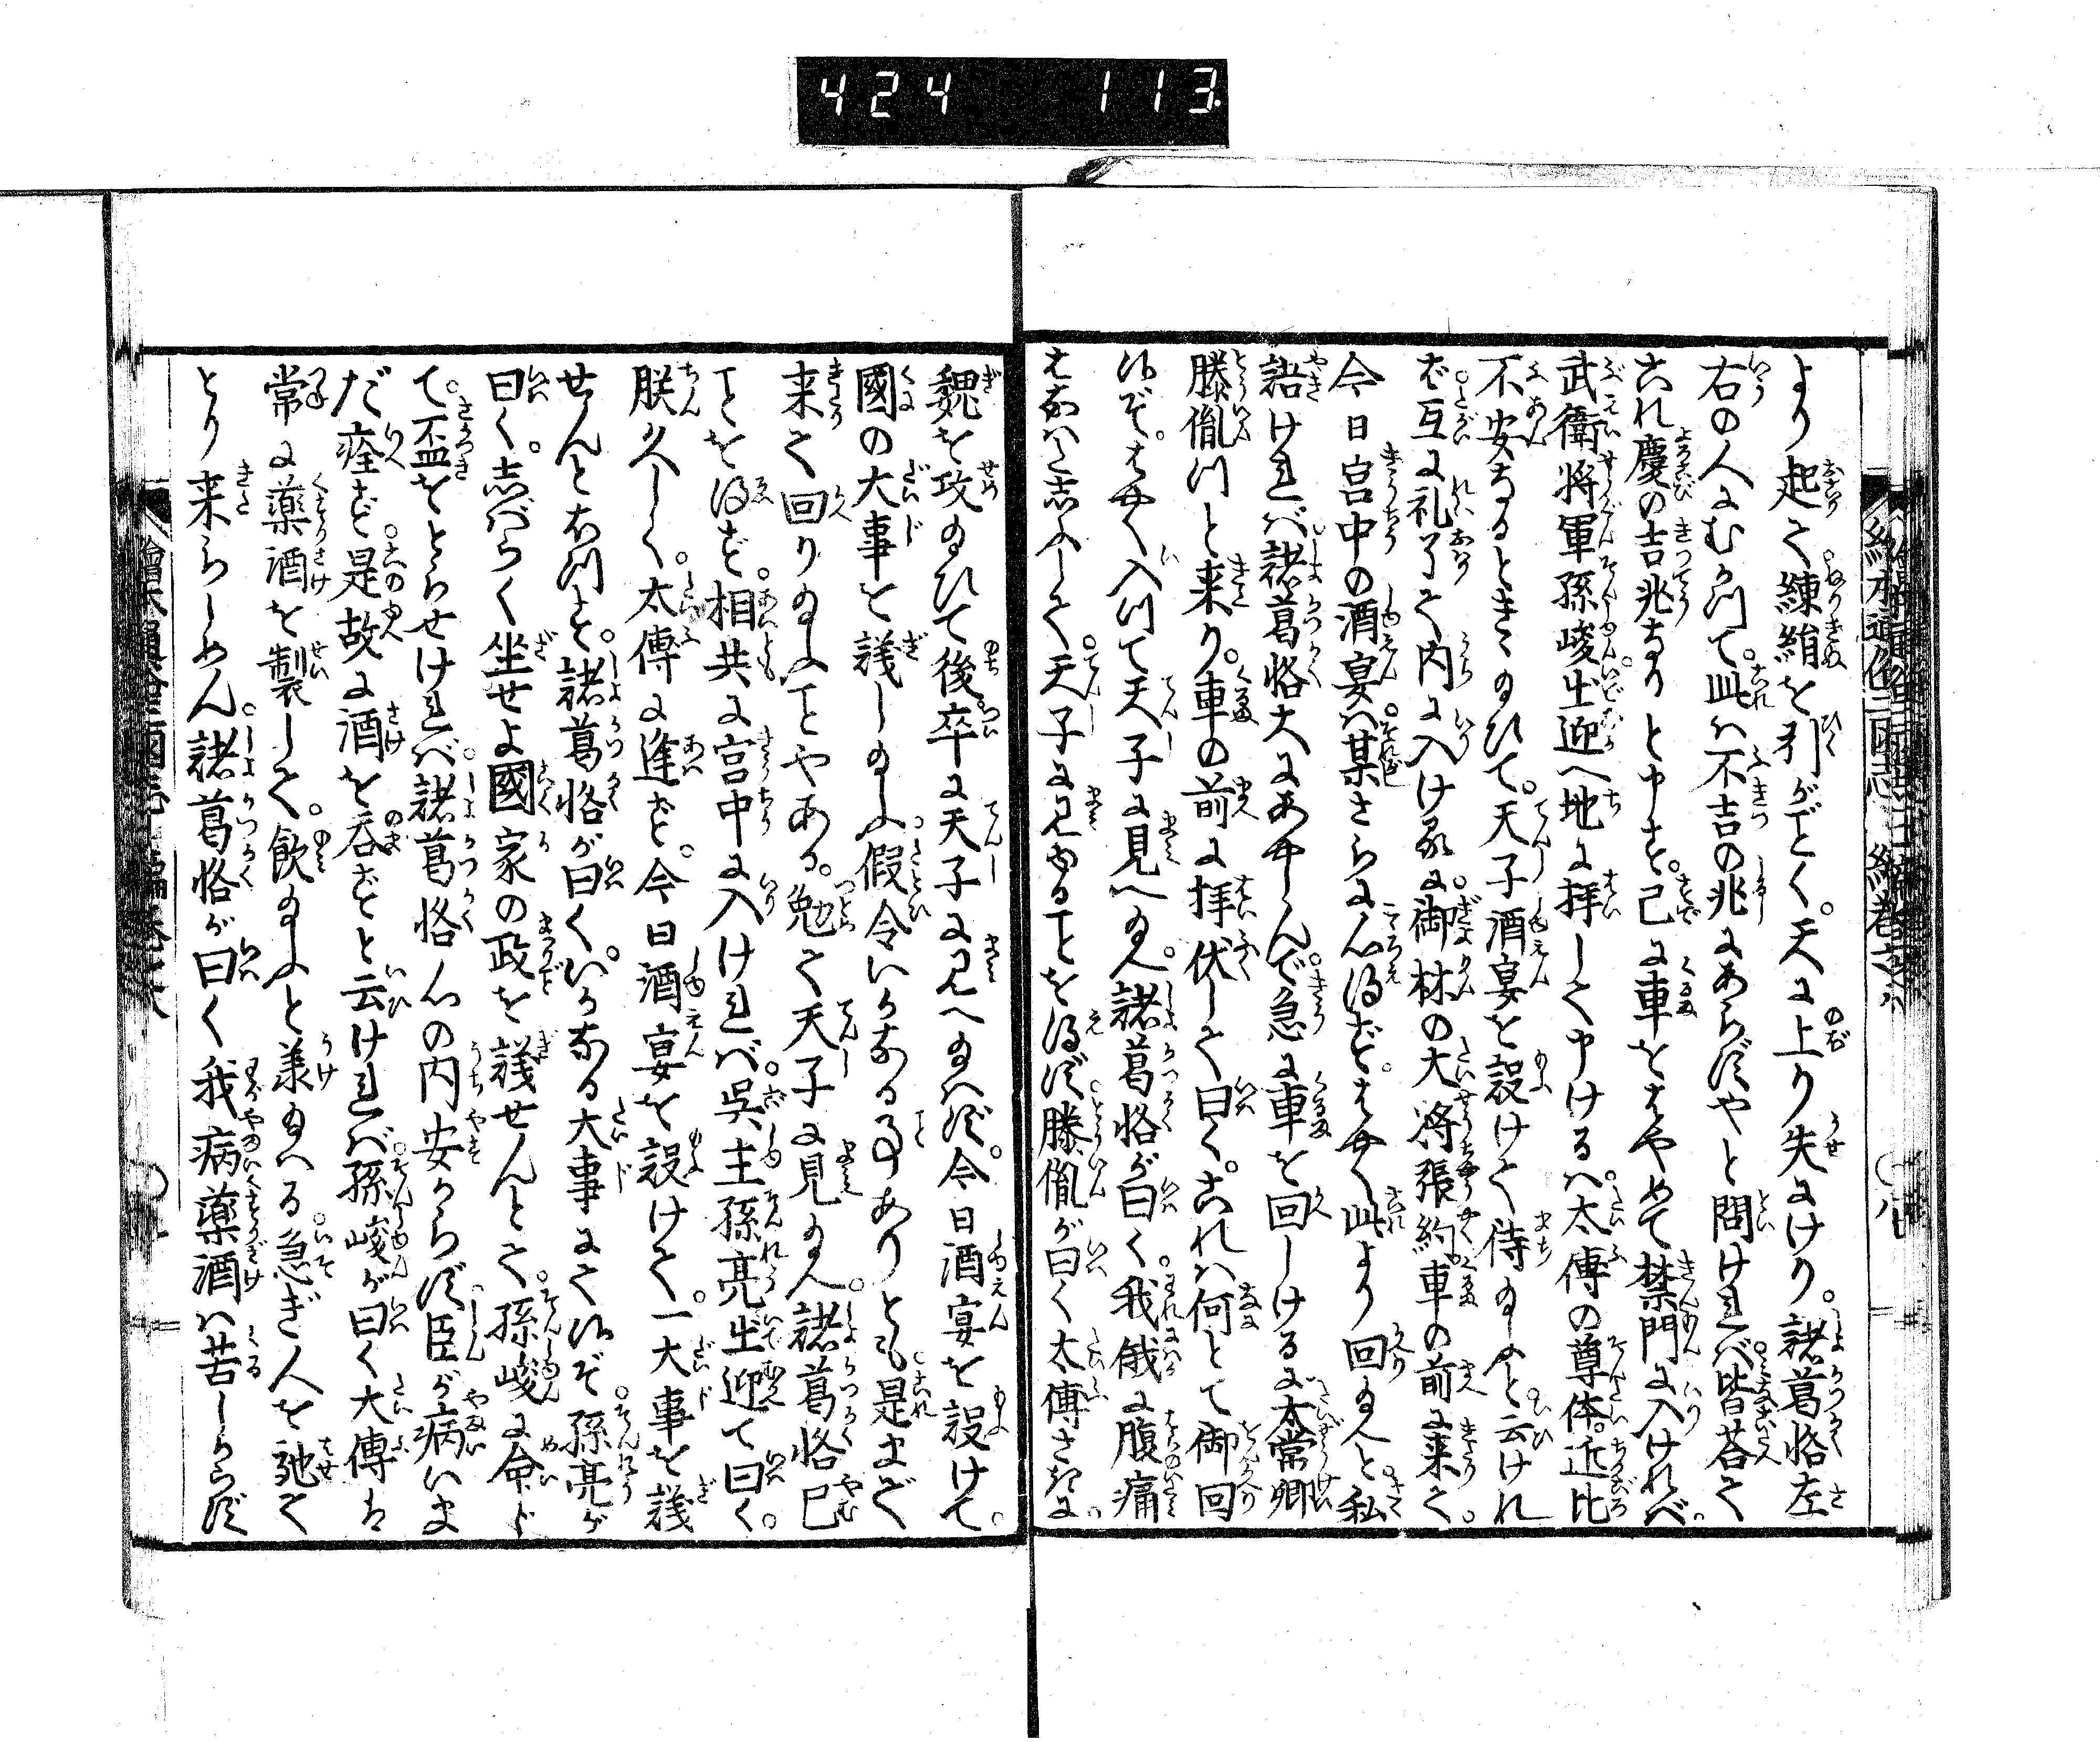 424 113
より起て練絹を引がごとく。天に上り失にけり。諸葛恪左
右の人にむかつて。此は不吉の兆にあらずやと問ければ皆答て
これ慶の吉兆なりと申す。已に車をはやめて禁門に入ければ。
武衛将軍孫峻出迎へ地に拝して申けるは。太傅の尊体。近比
不安なるときゝ給ひて。天子酒宴を設けて待給ふと云けれ
ば。互に礼了て内に入ける処に。御林の大将張約車の前に来て。
今日宮中の酒宴は。某さらに心得ず。はやく此より回り給へと。私
語ければ。諸葛恪大にあやしんで。急に車を回しけるに。太常卿
滕胤川と来り。車の前に拝伏して曰く。これは何とて御回
候ぞ。はやく入つて天子に見へ給へ。諸葛恪が曰く。我俄に腹痛
はなはだしふして。天子に見ゆることを得ず。滕胤が曰く太傅さきに。
魏を攻給ひて後卒に天子に見へ給はず。今日酒宴を設けて。
國の大事を議し給ふ。假令いかなる事ありとも。是まで
来て回り給ふことやある。勉て天子に見給へ。諸葛恪已
ことを得ず。相共に宮中に入ければ。呉主孫亮出迎て曰く。
朕久しく。太傅に逢ず。今日酒宴を設けて。一大事を議
せんと欲す。諸葛恪が曰く。いかなる大事にて候ぞ。孫亮が
曰く。志ばらく坐せよ國家の政を議せんとて。孫峻に命じ
て。盃をとらせければ。諸葛恪心の内安からず。臣が病いま
だ痊ず。是故に酒を呑ずと云ければ。孫峻が曰く大傅は
常に薬酒を製して。飲給ふと羕給へる。急ぎ人を馳て
とり来らしめん。諸葛恪が曰く我病薬酒は苦しからず